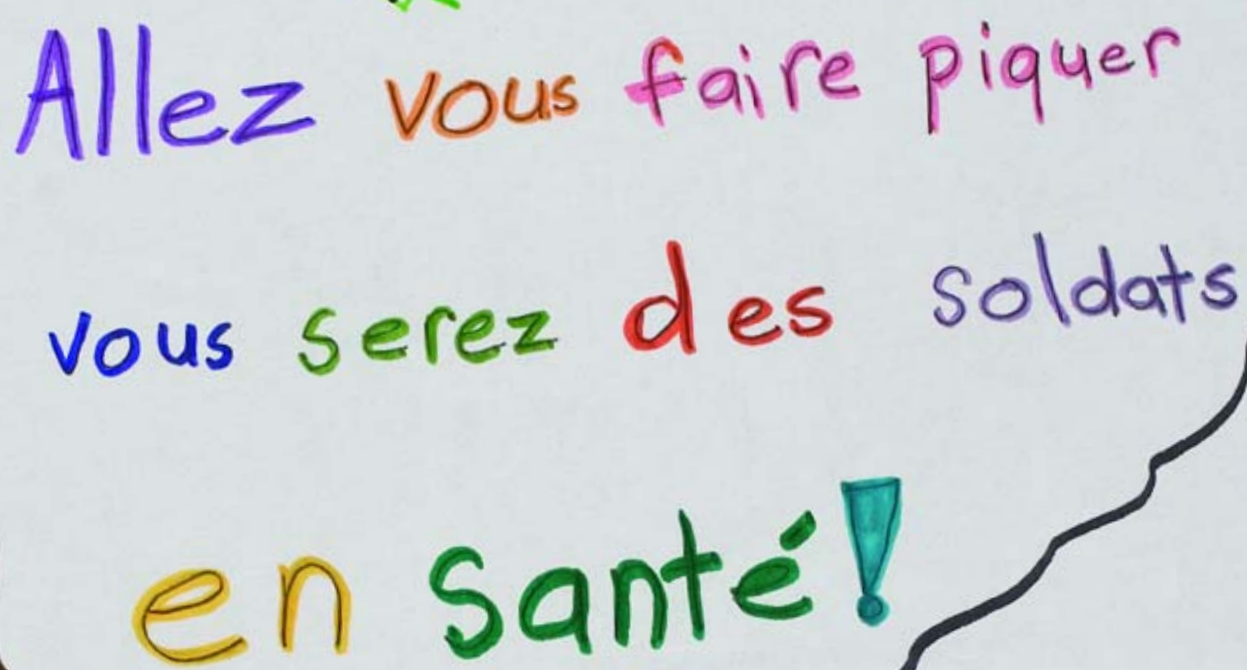 Allez vous faire piquer
vous serez des soldats
en santé!